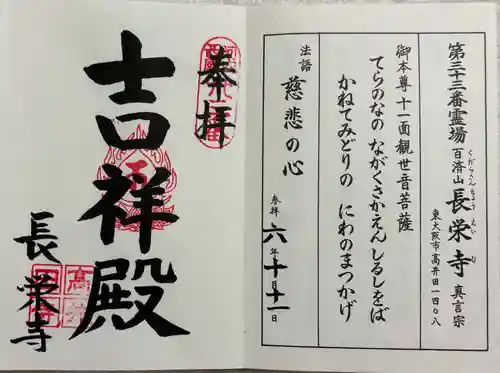 第三十三番霊場 百済山 長栄寺 真言宗
くだらさん ちょうえいじ
東大阪市高井田一四〇八
御本尊 十一面観世音菩薩
てらのなの ながくさかえんしるしをば
かねてみどりの にわのまつかげ
法語 慈悲の心
参拝 六年十月十二日
奉拝
吉祥殿
長栄寺